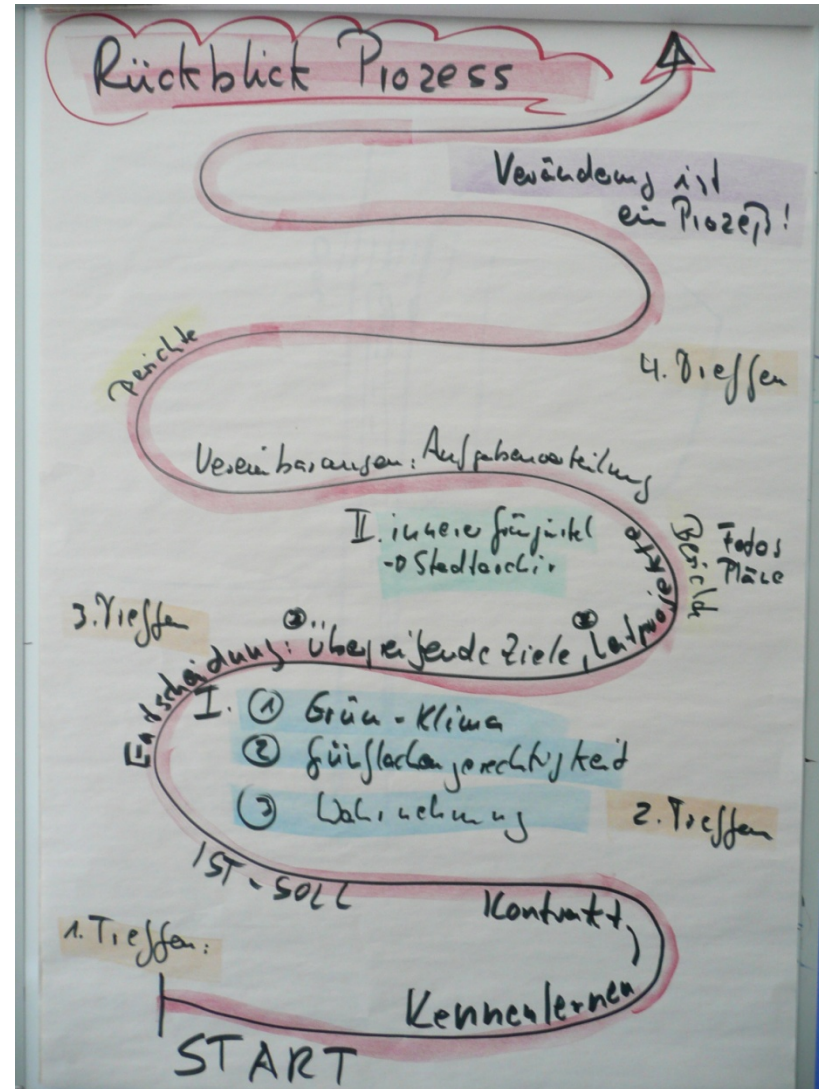 Rückblick Prozess
Veränderung ist
ein Prozeß!
4. Treffen
Berichte
Vereinbarungen: Aufgabenverteilung
II. innerer Grüngürtel
→ Stadtarchiv
Bericht
Fotos
Pläne
3. Treffen
Entscheidung: übergreifende Ziele, Leitprojekte
I. ① Grün-Klima
② Grünflächengerechtigkeit
③ Wahrnehmung
2. Treffen
IST-SOLL
Kontrakt,
1. Treffen:
Kennenlernen
START